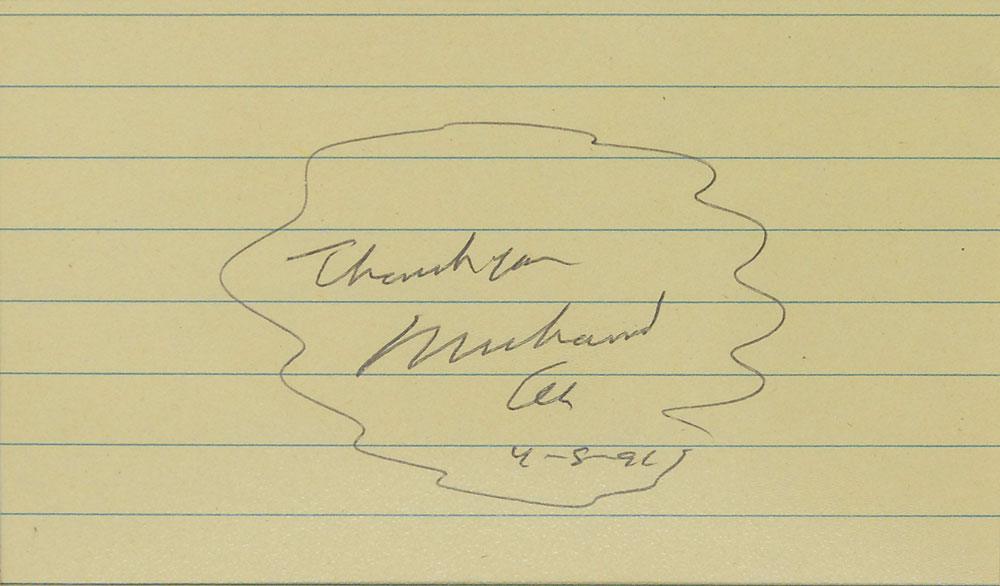 Thank you
Muhammad
Ali
4-5-91